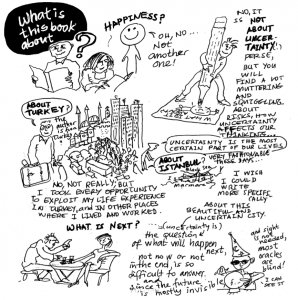 What is
this book
about
?
HAPPINESS?
OH, NO...
Not
another
one!
NO, IT
IS NOT
ABOUT
UNCER-
TAINTY
PERSE,
BUT YOU
WILL
FIND A LOT
MUTTERING
AND
SQUIGGLING
ABOUT
RISKS, HOW
UNCERTAINTY
AFFECTS OUR
THINKING...
UNCERTAINTY IS THE MOST
CERTAIN PART OF OUR LIVES
ABOUT
TURKEY?
The
author
is from
NO, NOT REALLY, BUT
I TOOK EVERY OPPORTUNITY
TO EXPLOIT MY LIFE EXPERIENCE
IN TURKEY AND IN OTHER PLACES
WHERE I LIVED AND WORKED.
ABOUT
ISTANBUL?
VERY FASHIONABLE
THESE DAYS...
marmara
I WISH
I COULD
WRITE
MORE SPECIFIC
ALLY
ABOUT THIS
BEAUTIFUL AND
UNCERTAIN CITY.
WHAT IS NEXT?
(uncertainty) is
the question
of what will happen
next,
not now or not
in the end, is so
difficult to answer.
and
since the future
is mostly invisible
and right
not
needed,
most
oracles
are
blind!
I CAN
SEE IT